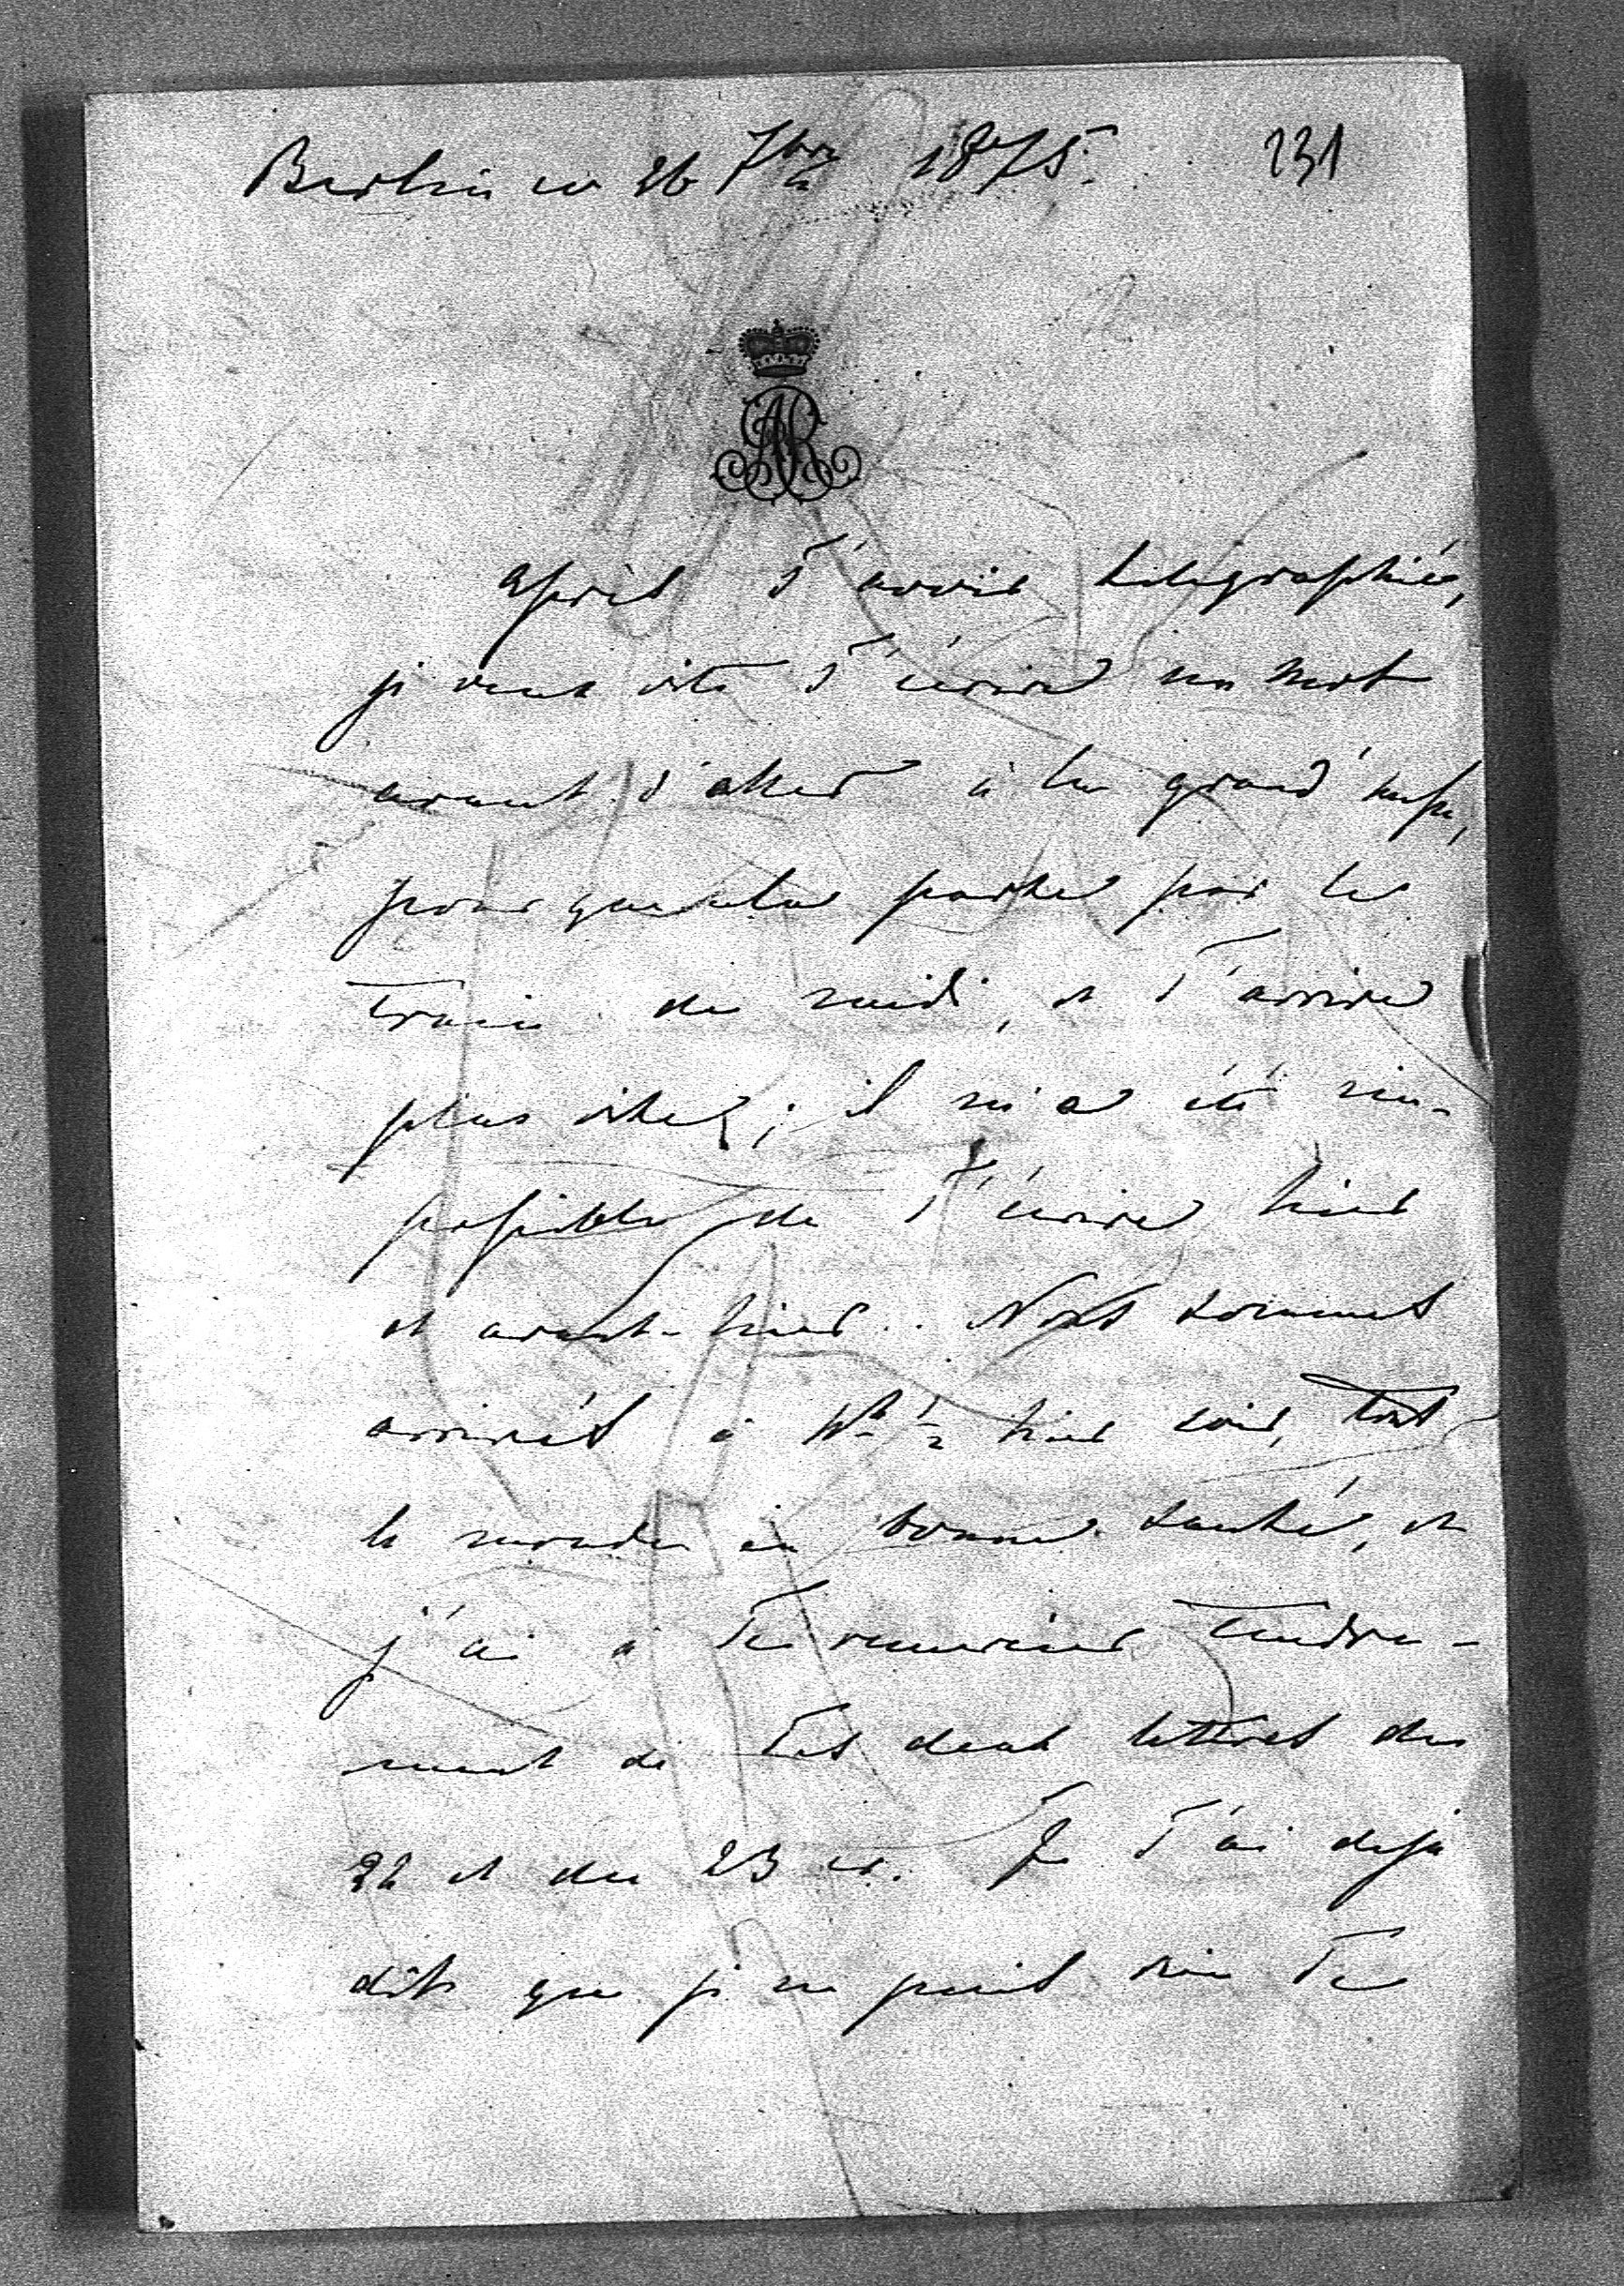 Berlin ce 26 7bre 1875. 231
AR
Après T'avoir télégraphié,
je veux vite T'écrire un mot
avant d'aller à la grand' messe,
pour que cela parte par le
train de midi, et T'arrive
plus vite; il m'a été im-
possible de T'écrire hier
et avant-hier. Nous sommes
arrivés à h ½ hier soir, tout
le monde en bonne santé, et
j'ai à Te remercier tendre-
ment de Tes deux lettres du
22 et du 23 ct. Je T'ai déjà
dit que je ne puis rien Te